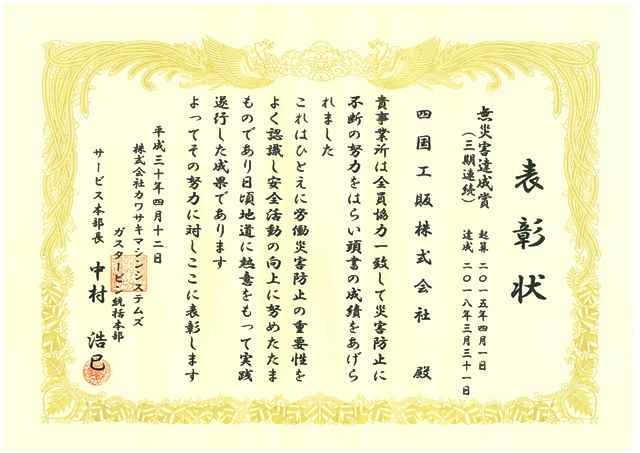 表彰状
無災害達成賞
(三期連続)
起算 二〇一五年四月一日
達成 二〇一八年三月三十一日
四国工販株式会社 殿
貴事業所は全員協力一致して災害防止に
不断の努力をはらい頭書の成績をあげら
れました
これはひとえに労働災害防止の重要性を
よく認識し安全活動の向上に努めたたま
ものであり日頃地道に熱意をもって実践
遂行した成果であります
よってその努力に対しここに表彰します
平成三十年四月十二日
株式会社カワサキマシンシステムズ
ガスタービン統括本部
サービス本部長 中村 浩己